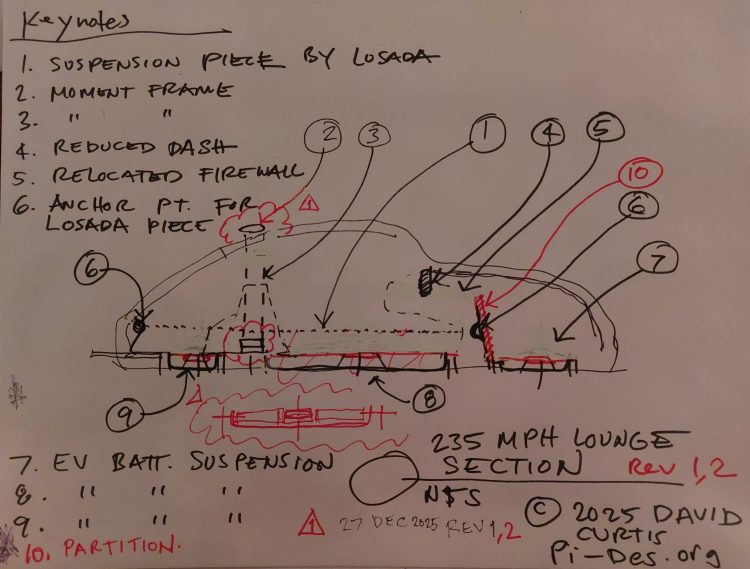 Keynotes
1. SUSPENSION PIECE BY LOSADA
2. MOMENT FRAME
3. " "
4. REDUCED DASH
5. RELOCATED FIREWALL
6. ANCHOR PT. FOR
LOSADA PIECE
2 3 1 4 5 10
1
6 6
7
9 1 8
7. EV BATT. SUSPENSION
8. " " "
9. " " "
10. PARTITION.
235 MPH LOUNGE
SECTION REV 1,2
NTS
1 27 DEC 2025 REV 1,2
© 2025 DAVID
CURTIS
Pi-Des.org